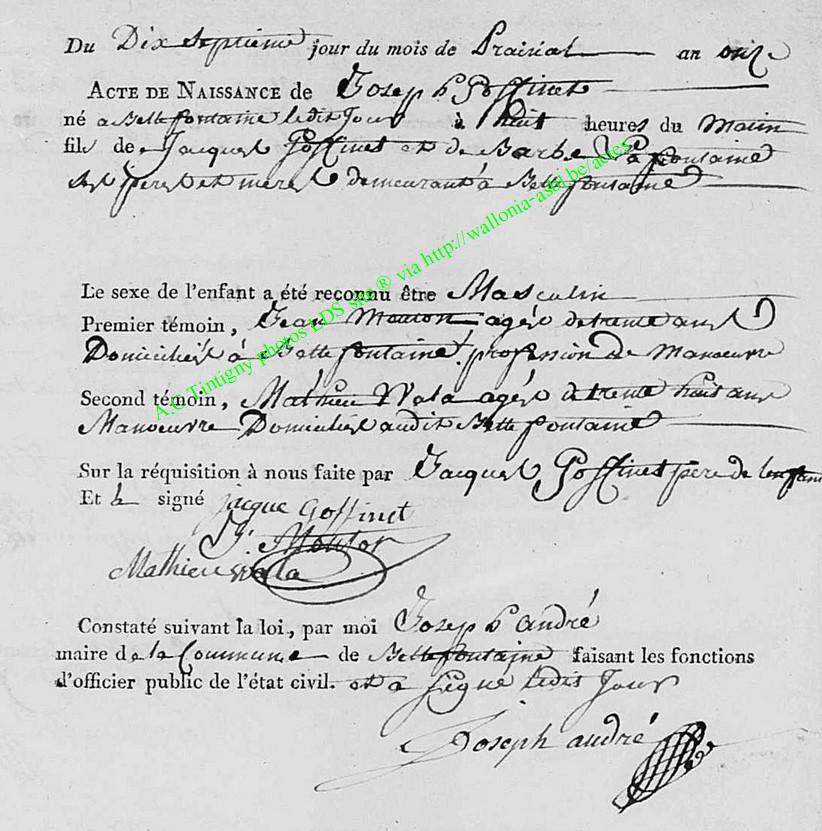 Du Dix Septieme jour du mois de Prairial an onze
ACTE DE NAISSANCE de Joseph Goffinet
né a Bellefontaine ledit Jour à huit heures du Matin
fils de Jacques Goffinet et de Barbe La fontaine
Ses peres et meres demeurant à Bellefontaine
Le sexe de l'enfant a été reconnu être Masculin
Premier témoin, Jean Mouton agés de trente ans
Domiciliés à Bellefontaine profession de Manoeuvre
Second témoin, Mathieu Wala agés de trente huit ans
Manoeuvre Domiciliés audit Bellefontaine
Sur la réquisition à nous faite par Jacques Goffinet pere de lenfant
Et signé jacque Goffinet
J. Mouton
Mathieu Wala
Constaté suivant la loi, par moi Joseph andré
maire de la Commune de Bellefontaine faisant les fonctions
d'officier public de l'état civil. et a signé ledit Jour
Joseph andré
A.C Tintigny photos LDS site® via http://wallonia-asbl.be/actes